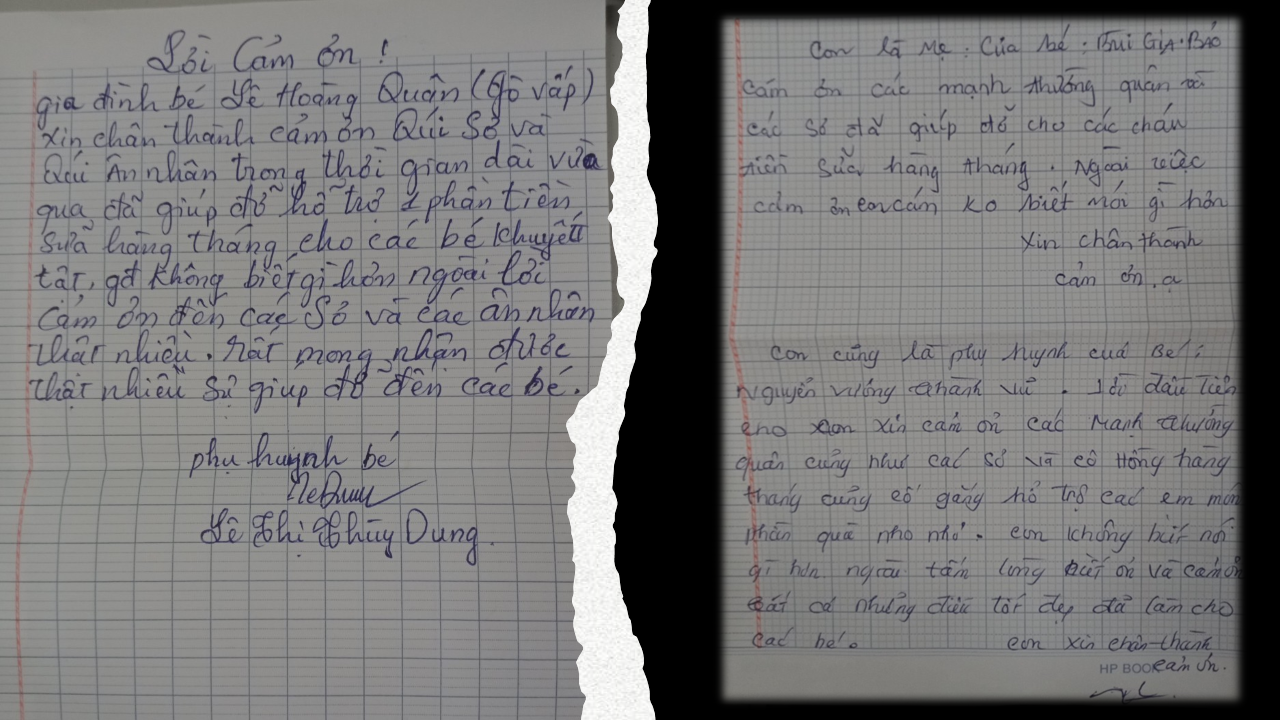 Lời Cảm ơn !
gia đình bé Lê Hoàng Quân (Gò vấp)
xin chân thành cảm ơn Quí Sơ và
Quí Ân nhân trong thời gian dài vừa
qua, đã giúp đỡ hỗ trợ 1 phần tiền
Sữa hàng tháng cho các bé khuyết
tật, gđ không biết gì hơn ngoài lời
Cảm ơn đến các Sơ và các ân nhân
thật nhiều. Rất mong nhận được
thật nhiều sự giúp đỡ đến các bé.
phụ huynh bé
Lê Thị Thùy Dung.
Con là Mẹ. Của bé. Bùi GIA. BẢO
Cám ơn các mạnh thường quân và
các sơ đã giúp đỡ cho các cháu
tiền sữa hàng tháng. Ngoài việc
cảm ơn con cám ko biết nói gì hơn
Xin chân thành
cảm ơn. ạ
Con cũng là phụ huynh cuả Bé:
Nguyễn vương thành vũ. lời đầu tiên
cho con xin cám ơn các Mạnh thường
quân cũng như các sơ và cô Hồng hàng
tháng cũng cố gắng hổ trợ các em món
phần quà nho nhỏ. con không biết nói
gì hơn ngoài tấm lòng biết ơn và cám ơn
tất cả những điều tốt đẹp đã làm cho
các bé. con xin chân thành
HP BOOK cám ơn.